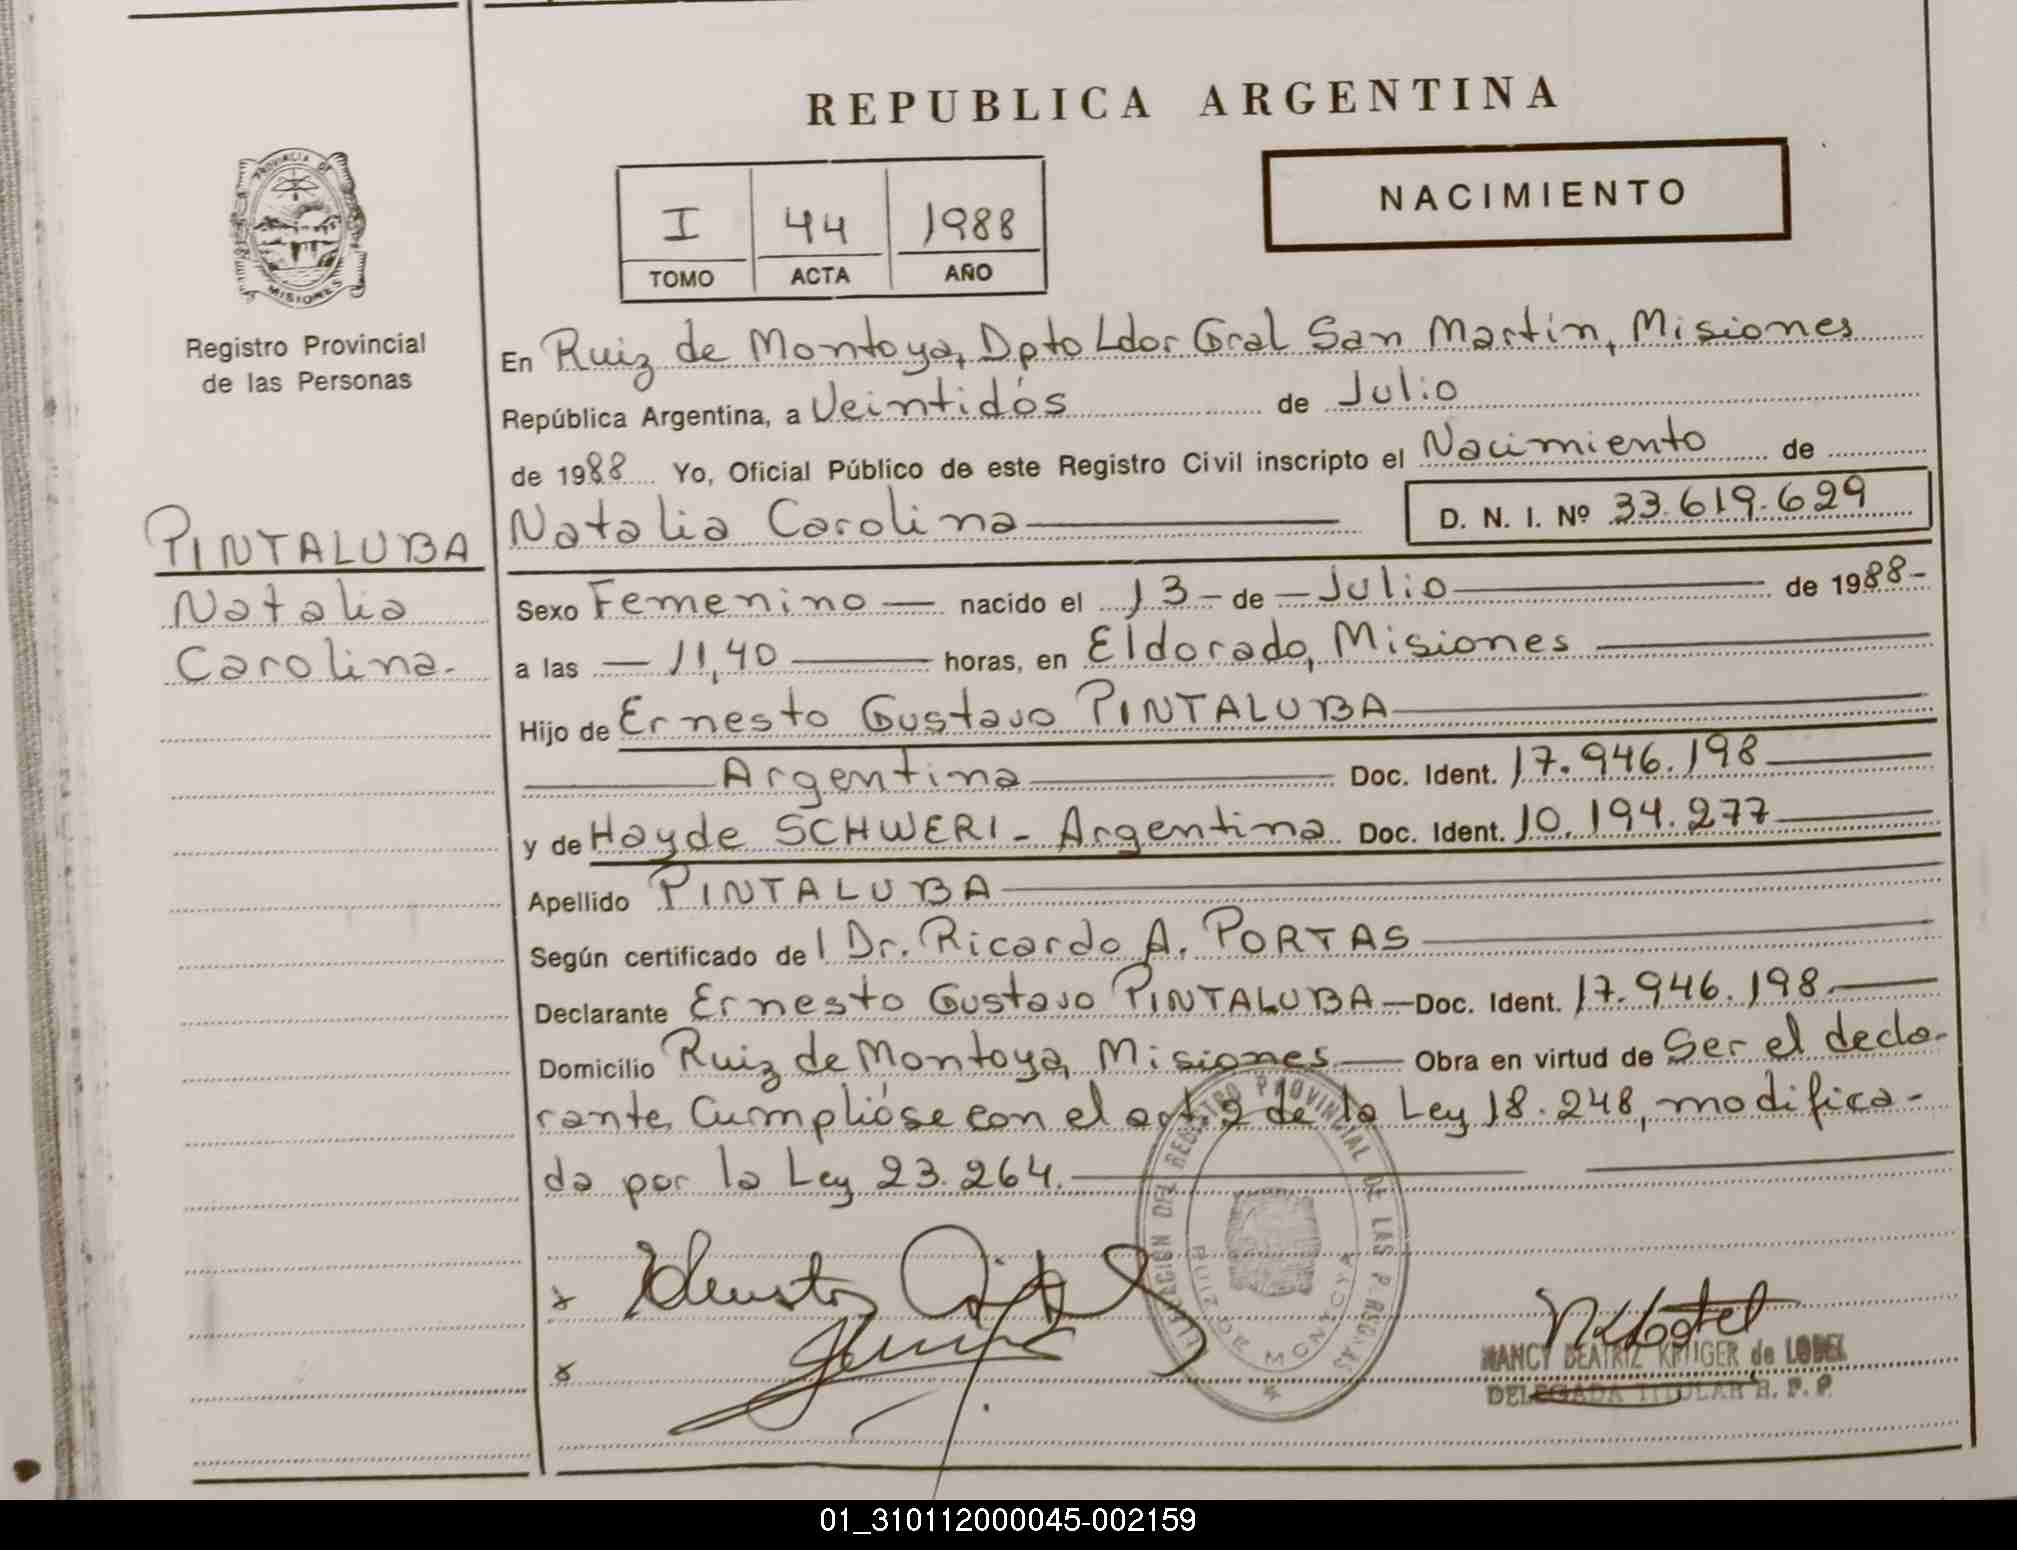 REPUBLICA ARGENTINA
PROVINCIA DE
MISIONES
Registro Provincial
de las Personas
I 44 1988
TOMO ACTA AÑO
NACIMIENTO
En Ruiz de Montoya, Dpto Ldor Gral San Martín, Misiones
República Argentina, a Veintidós de Julio
de 1988 Yo, Oficial Público de este Registro Civil inscripto el Nacimiento de
Natalia Carolina D. N. I. Nº 33.619.629
PINTALUBA
Natalia
Carolina.
Sexo Femenino nacido el 13 - de - Julio de 1988-
a las 11,40 horas, en Eldorado, Misiones
Hijo de Ernesto Gustavo PINTALUBA
Argentina Doc. Ident. 17.946.198
y de Hayde SCHWERI - Argentina Doc. Ident. 10.194.277
Apellido PINTALUBA
Según certificado de l Dr. Ricardo A. PORTAS
Declarante Ernesto Gustavo PINTALUBA - Doc. Ident. 17.946.198
Domicilio Ruiz de Montoya, Misiones Obra en virtud de Ser el decla-
rante, Cumplióse con el art 2 de la Ley 18.248, modifica-
da por la Ley 23.264.
DEL REGISTRO PROVINCIAL DE LAS PERSONAS
RUIZ DE MONTOYA
NANCY BEATRIZ KRUGER de
DELEGADA TITULAR R. P. P.
01_310112000045-002159